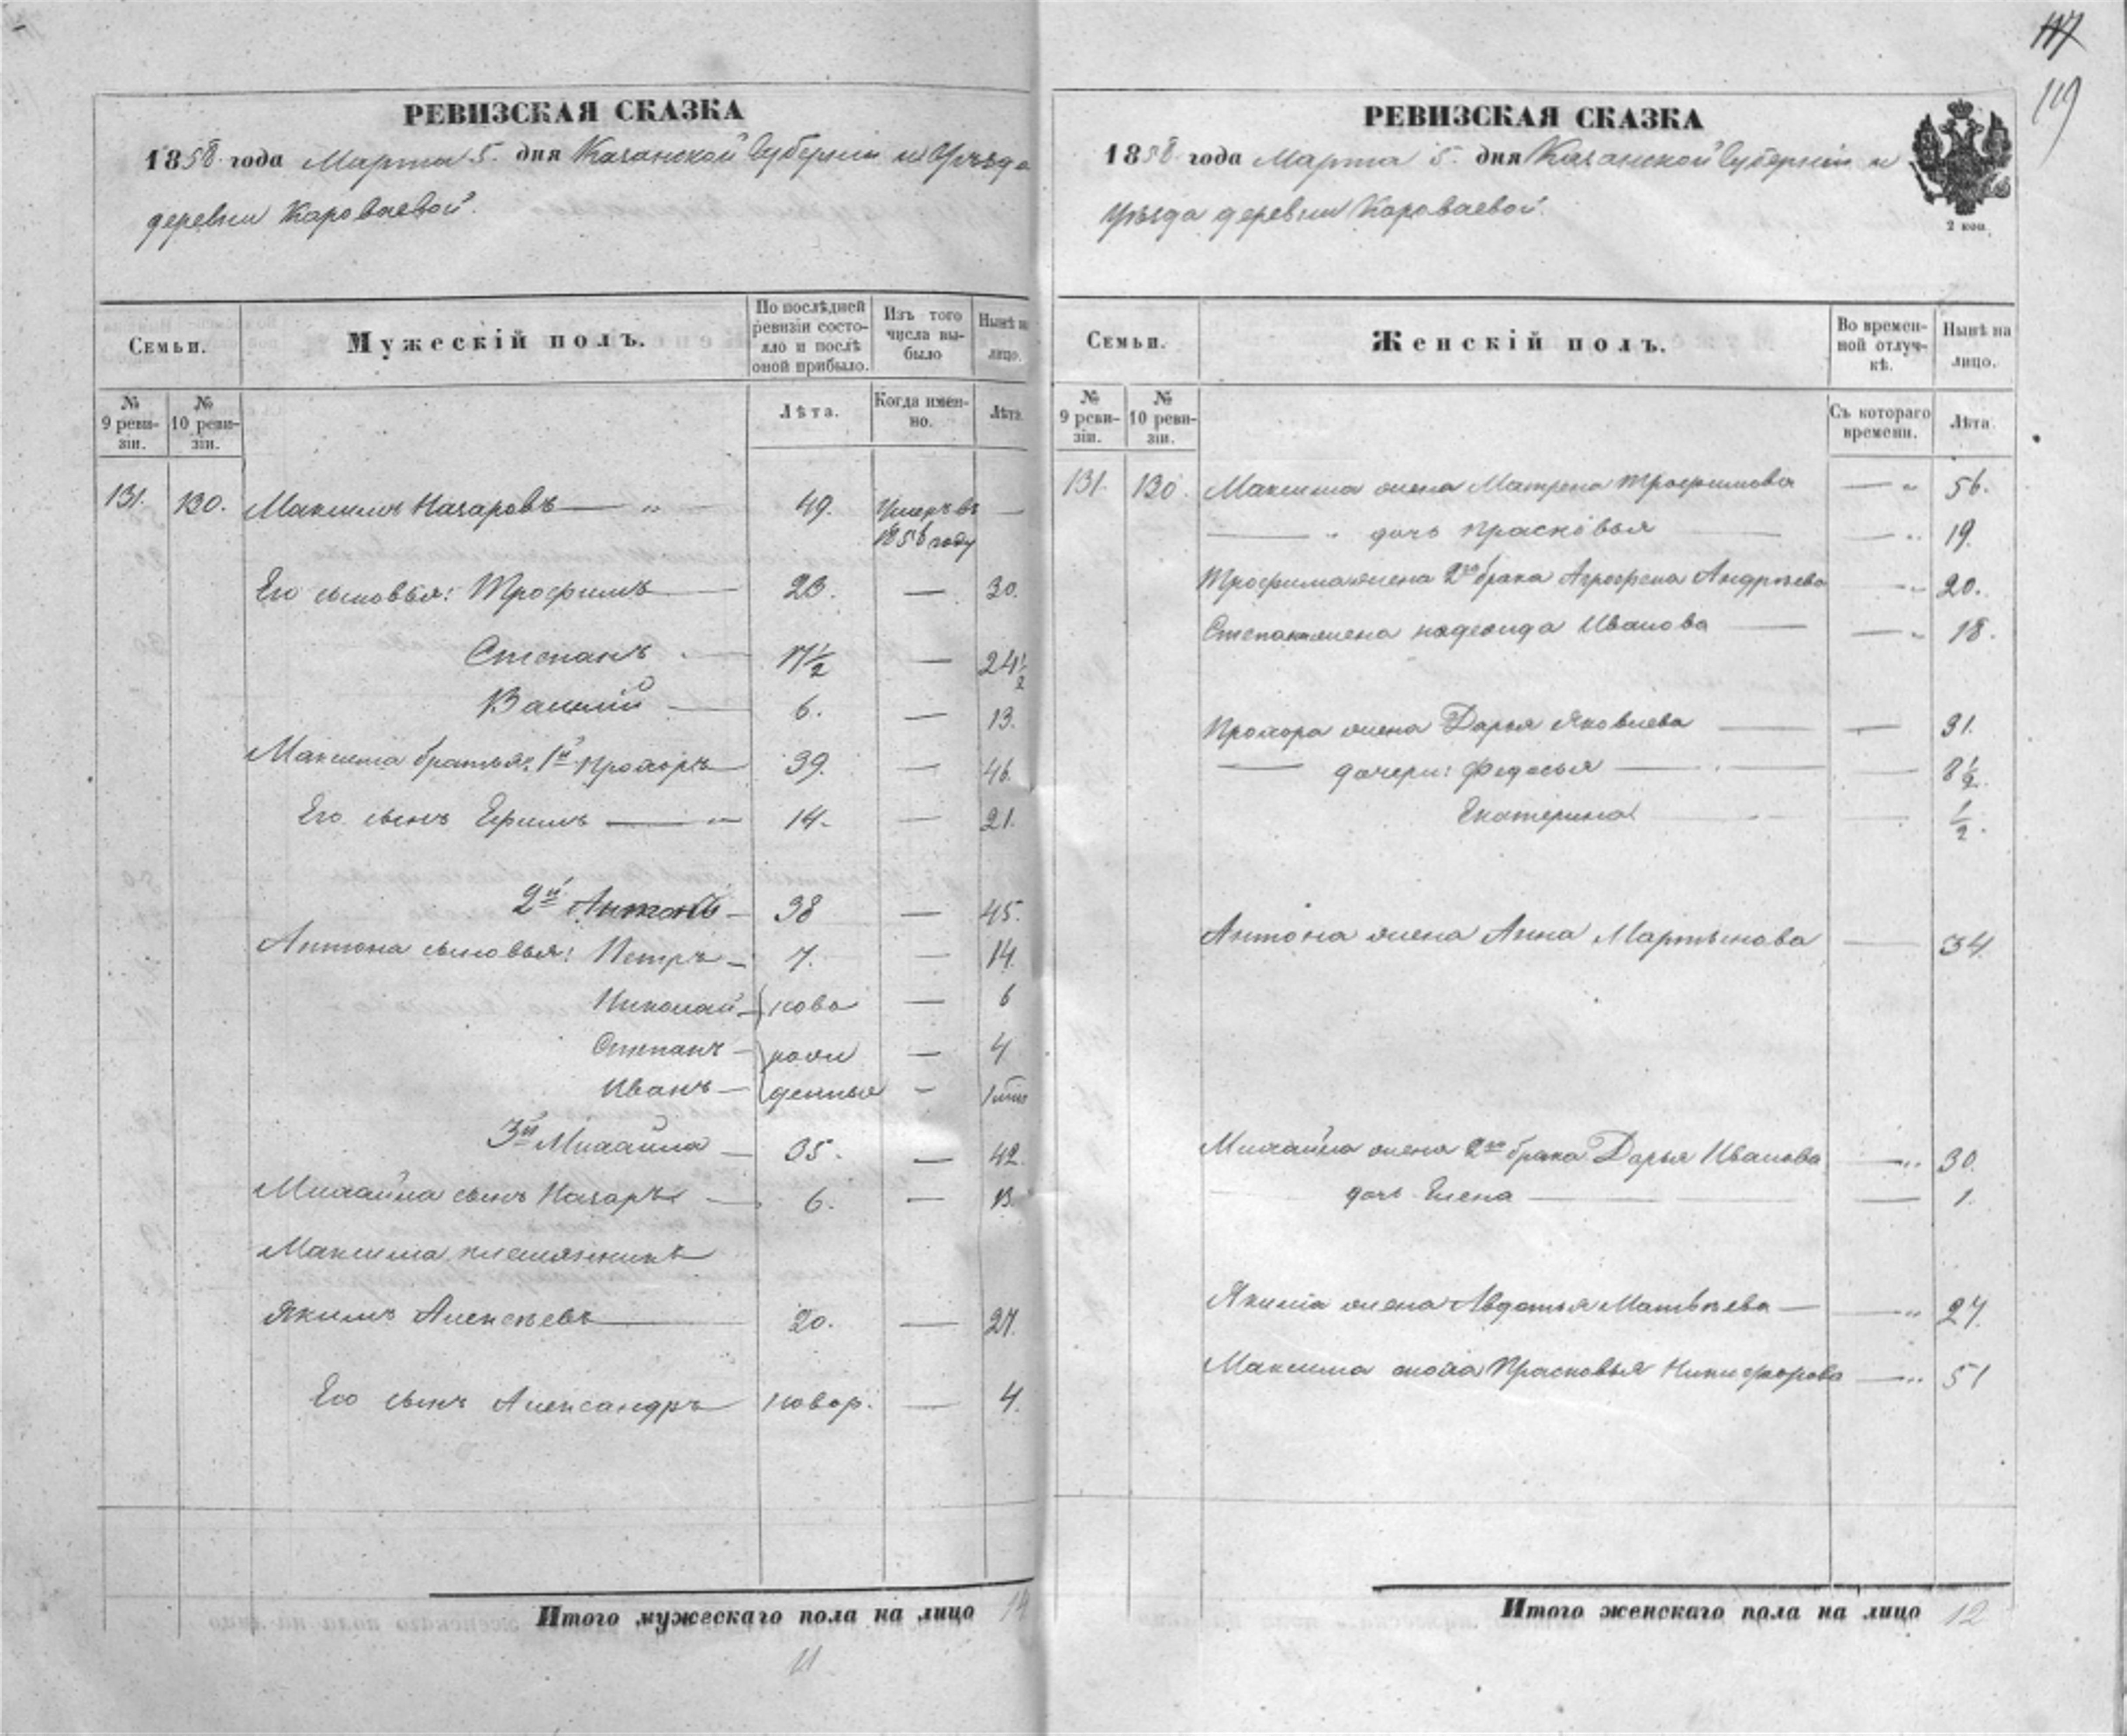 117
119
РЕВИЗСКАЯ СКАЗКА
1858 года Марта 5. дня Казанской Губернiи и Уѣзда
деревни Караваевой.
Семьи.
Мужескiй полъ.
По послѣдней ревизiи состояло и послѣ оной прибыло.
Изъ того числа выбыло
Нынѣ на лицо.
№ 9 ревизiи.
№ 10 ревизiи.
Лѣта.
Когда именно.
Лѣта.
131. 130. Максимъ Назаровъ — „ — 49. Умеръ въ 1856 году —
Его сыновья: Трофимъ — 23. — 30.
Степанъ — 17½ — 24½
Василiй — 6. — 13.
Максима братья: 1й Прохоръ — 39. — 46.
Его сынъ Ефимъ — „ 14. — 21.
2й Антонъ — 38 — 45.
Антона сыновья: Петръ — 7. — 14.
Николай — ново — 6
Степанъ — рожи — 4
Иванъ — денные — 1
3й Михайла — 35. — 42.
Михайла сынъ Назаръ — 6. — 13.
Максима племянникъ
Якимъ Алексѣевъ — 20. — 27.
Его сынъ Александръ новор. — 4.
Итого мужескаго пола на лицо 14
11
РЕВИЗСКАЯ СКАЗКА
1858 года Марта 5. дня Казанской Губернiи и
Уѣзда деревни Караваевой.
2 коп.
Семьи.
Женскiй полъ.
Во временной отлучкѣ.
Нынѣ на лицо.
№ 9 ревизiи.
№ 10 ревизiи.
Съ котораго времени.
Лѣта.
131. 130. Максима жена Матрена Трофимова — „ 56.
— „ дочь Прасковья — — „ 19.
Трофима жена 2го брака Агрофена Андрѣева — „ 20.
Степана жена Надежида Иванова — — „ 18.
Прохора жена Дарья Яковлева — — 31.
— дочери: Федосья — — 8½.
Екатерина — ½.
Антона жена Анна Мартынова — 34.
Михайла жена 2го брака Дарья Иванова — „ 30.
дочь Елена — — 1.
Якима жена Авдотья Матвѣева — — „ 27.
Максима сноха Прасковья Никифорова — „ 51
Итого женскаго пола на лицо 12